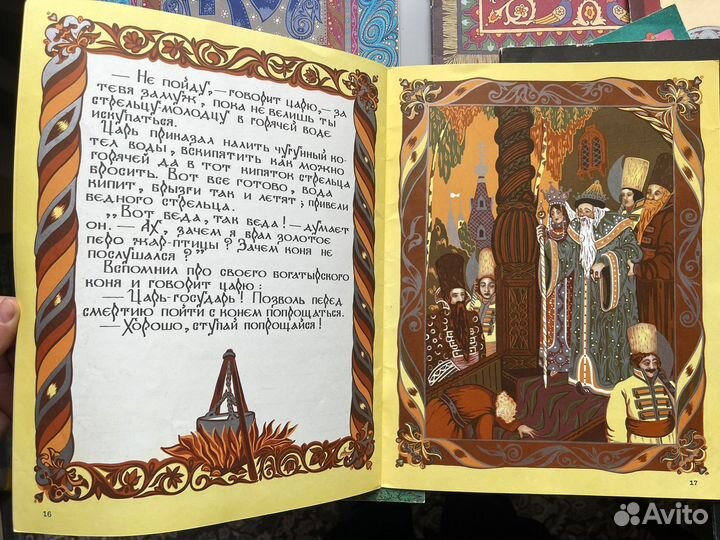 — Не пойду,— говорит царю,— за
тебя замуж, пока не велишь ты
стрельцу-молодцу в горячей воде
искупаться.
Царь приказал налить чугунный ко-
тел воды, вскипятить как можно
горячей да в тот кипяток стрельца
бросить. Вот все готово, вода
кипит, брызги так и летят; привели
бедного стрельца.
„Вот беда, так беда! — думает
он. — Ах, зачем я брал золотое
перо жар-птицы? Зачем коня не
послушался?"
Вспомнил про своего богатырского
коня и говорит царю:
— Царь-государь! Позволь перед
смертию пойти с конем попрощаться.
— Хорошо, ступай попрощайся!
16
17
Avito